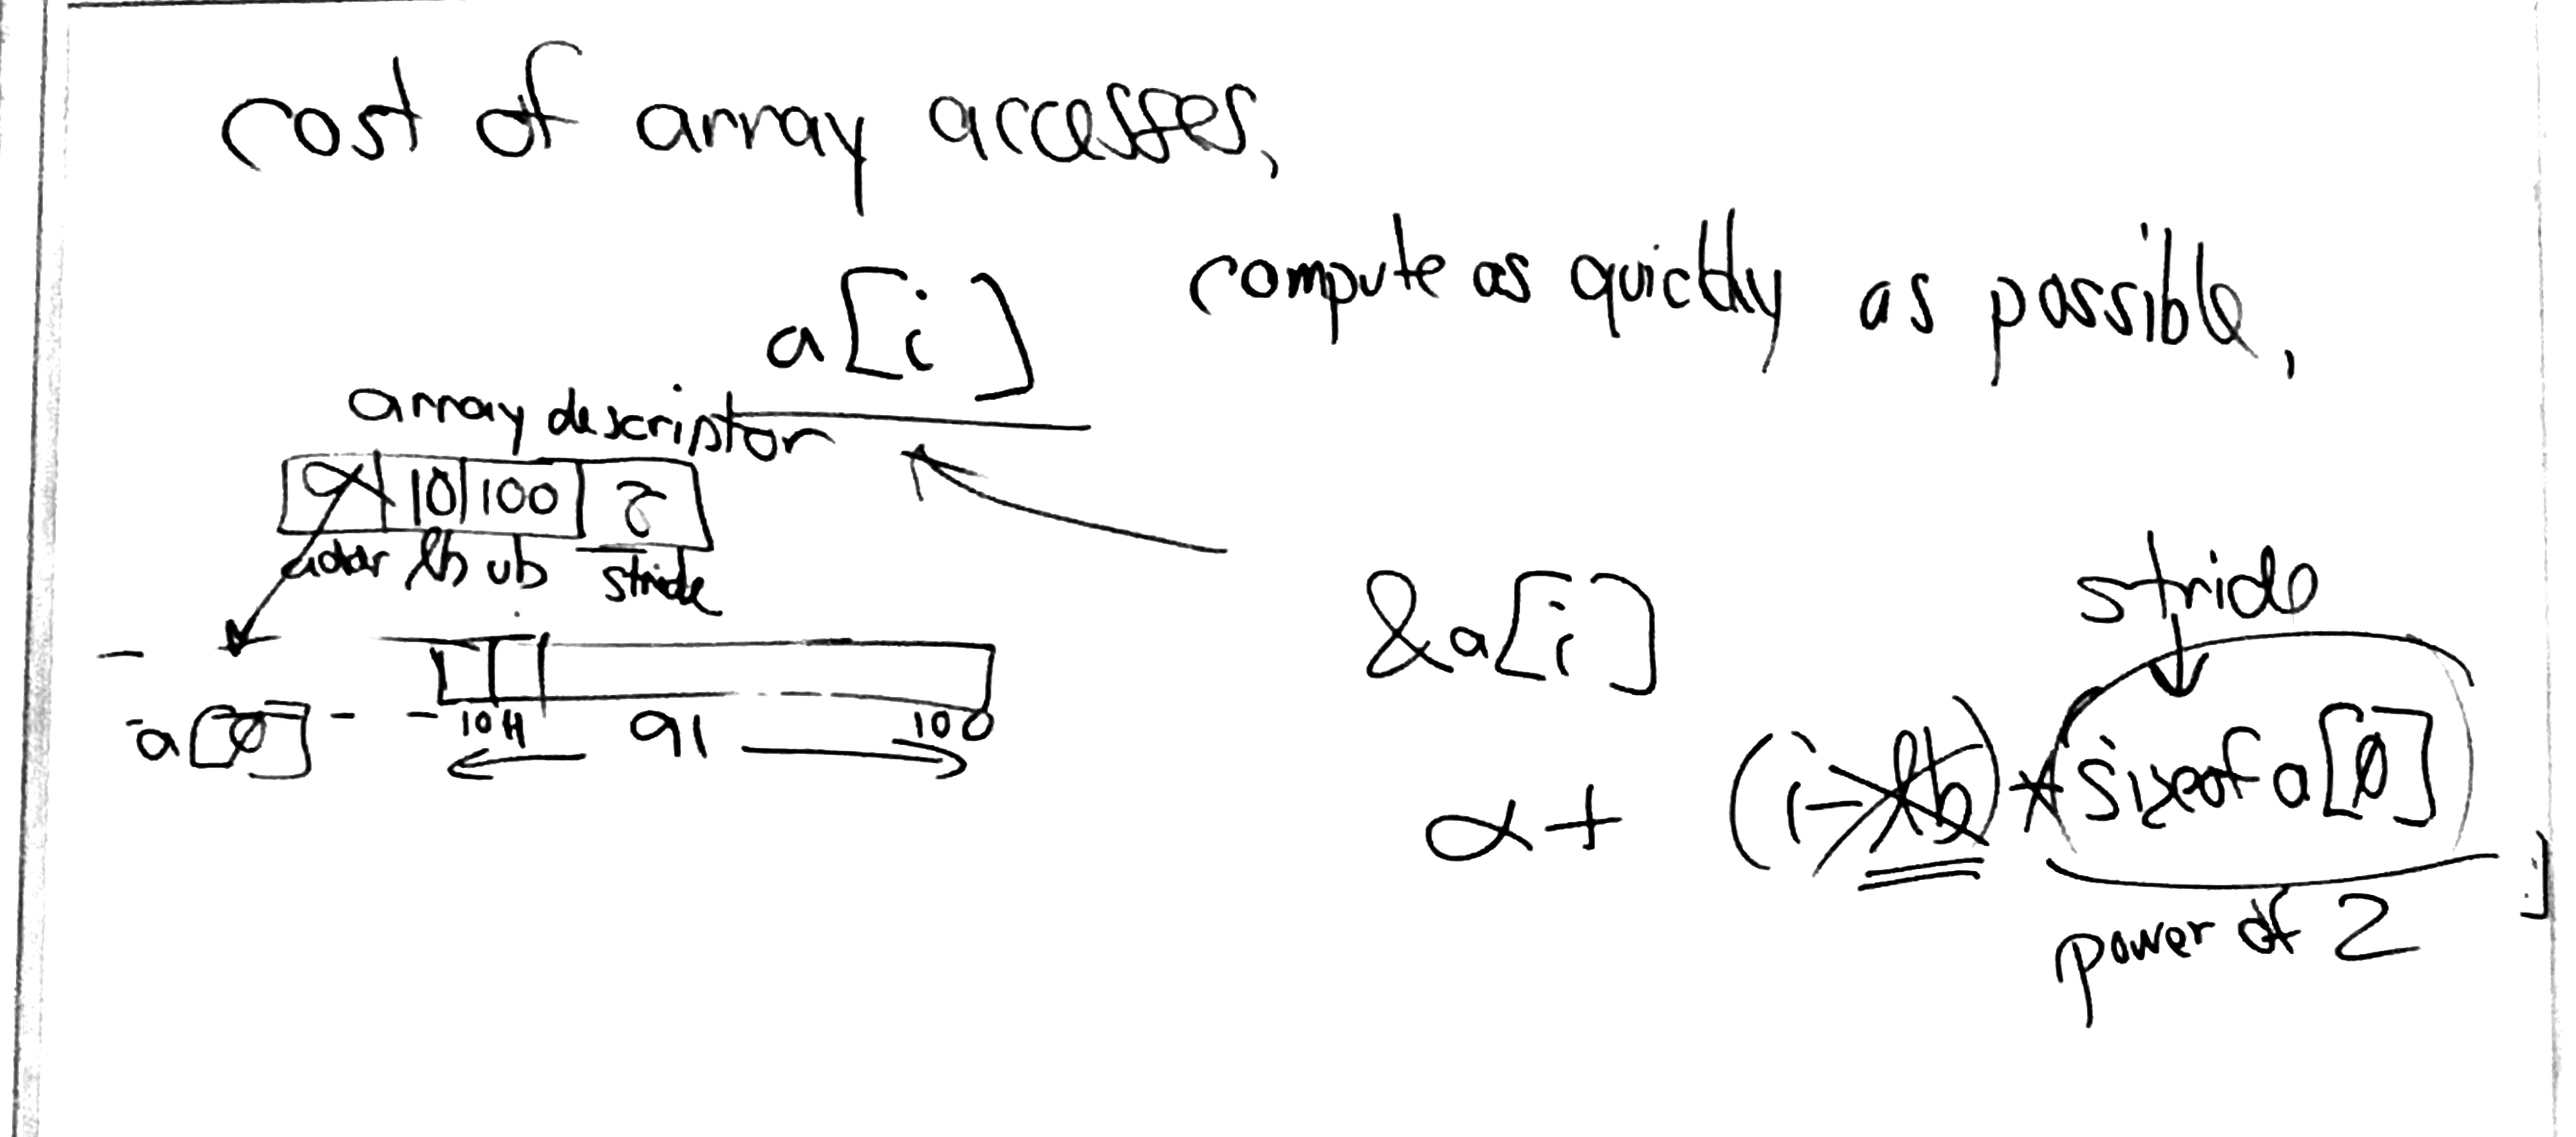 cost of array accesses,
compute as quickly as possible,
a[i]
array descriptor
α 10 100
addr lb ub stride
a[0]
10 11 91 100
&a[i]
stride
α + (i - lb) * sizeof a[0]
power of 2